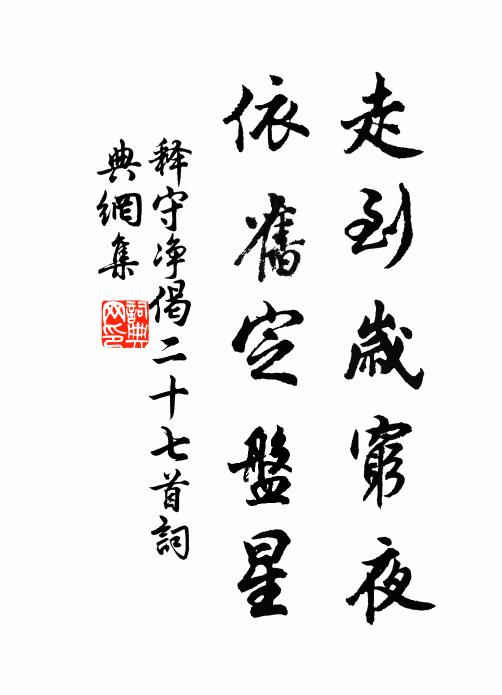 走到歲窮夜
依舊定盤星
释守净偈二十七首詞
典網集
詞典网印